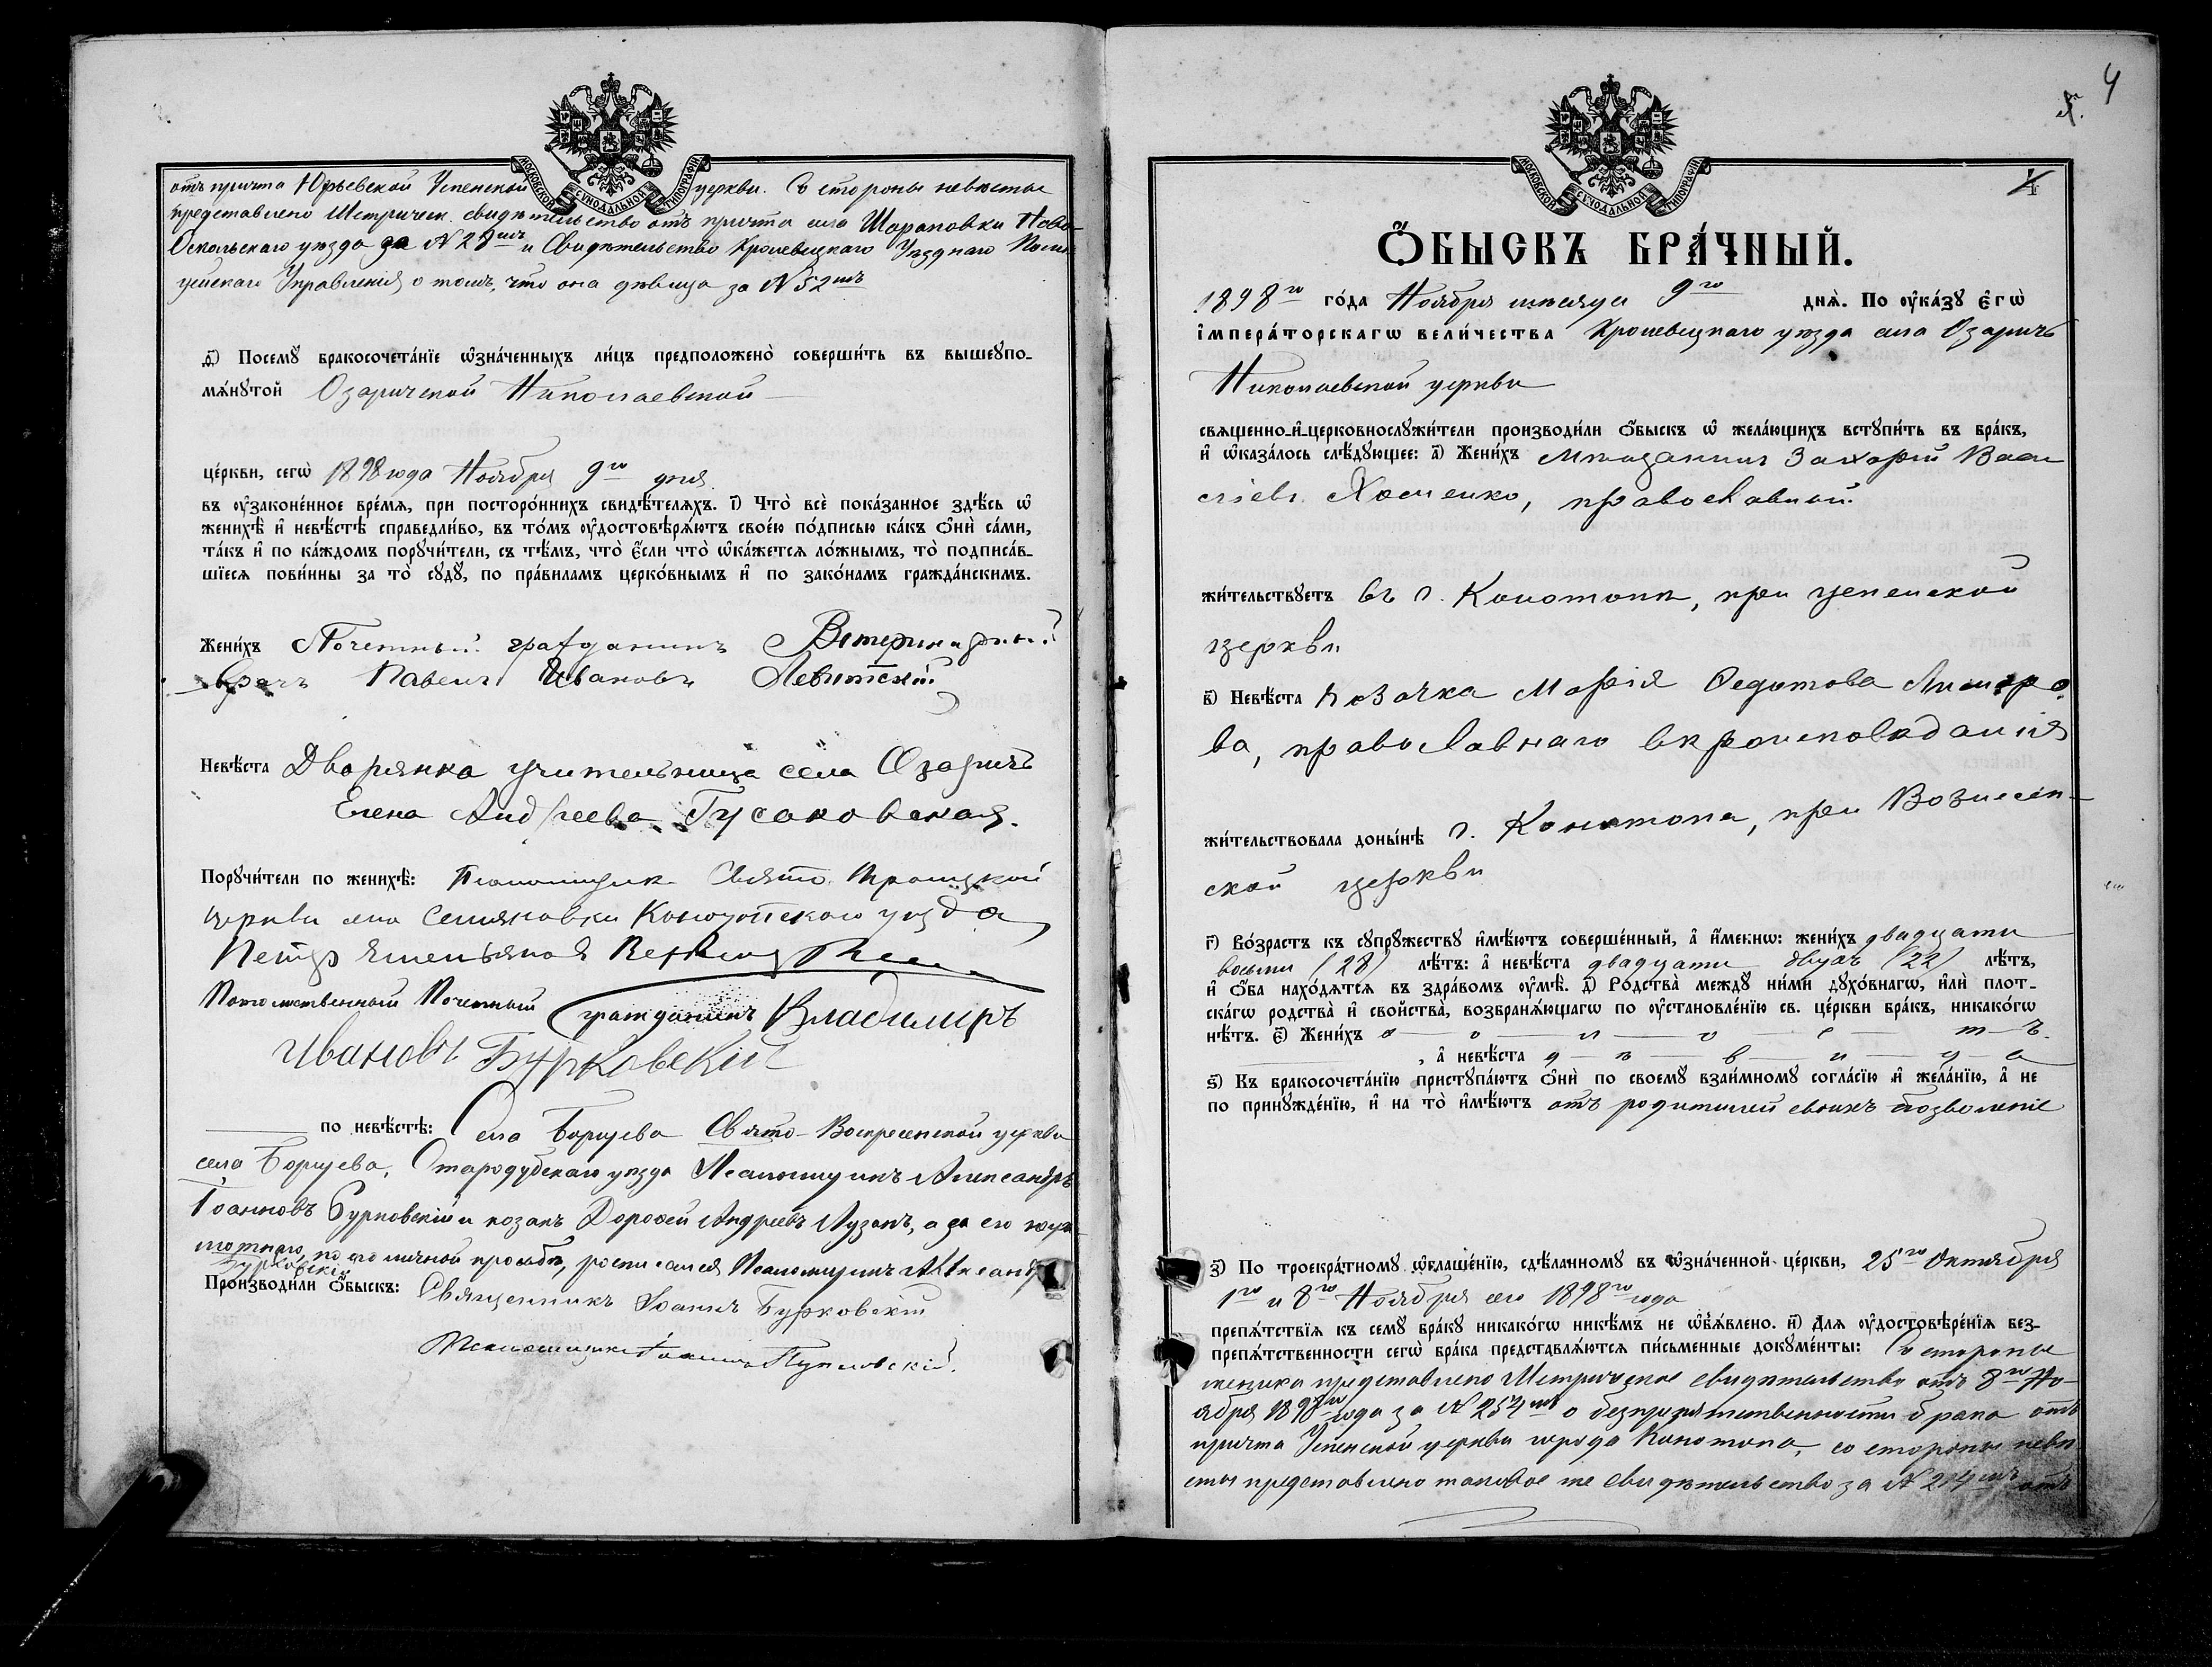 МОСКОВСКОЙ СѴНОДАЛЬНОЙ ТИПОГРАФІИ
отъ причта Юрьевской Успенской церкви. Со стороны невѣсты
представлено Метричен. свидѣтельство отъ причта села Шараповки Ново-
Оскольскаго уѣзда за № 28мъ и Свидѣтельство Кролевецкаго Уѣзднаго Поли-
цейскаго Управленія о томъ, что она дѣвица за № 52мъ
ѳ҃) Посемꙋ̀ бракосочета́нїе ѡ҆зна́ченныхъ ли́цъ предположено̀ соверши́ть въ вышеꙋпо-
мѧ́нꙋтой Озаричской Николаевской
це́ркви, сегѡ̀ 1898 года Ноября 9го дня
въ ᲂу҆зако́ненное вре́мѧ, при посторо́ннихъ свидѣ́телѧхъ. і҃) Что̀ всѐ пока́занное здѣ́сь ѡ҆
женихѣ̀ и҆ невѣ́стѣ справедли́во, въ то́мъ ᲂу҆достовѣрѧ́ютъ свое́ю по́дписью ка́къ ѻ҆нѝ са́ми,
та́къ и҆ по ка́ждомъ порꙋчи́тели, съ тѣ́мъ, что̀ є҆́сли что̀ ѡ҆ка́жетсѧ ло́жнымъ, то̀ подписа́в-
шїесѧ пови́нны за то̀ сꙋдꙋ̀, по пра́виламъ церко́внымъ и҆ по зако́намъ гражда́нскимъ.
Жени́хъ Почетный гражданинъ Ветеринарный
врачъ Павелъ Ивановъ Левитскій
Невѣ́ста Дворянка учительница села Озаричъ
Елена Андреева Гусаковская.
Порꙋчи́тели по женихѣ̀: Псаломщикъ Свято Троицкой
церкви села Семяновки Конотопскаго уѣзда
Петръ Емельяновъ
Потомственный Почетный гражданинъ Владимиръ
Ивановъ Бурковскій
по невѣ́стѣ: Села Борщева Свято-Воскресенской церкви
села Борщева, Стародубскаго уѣзда Псаломщикъ Александръ
Іоанновъ Бурковскій и козакъ Дорофей Андреевъ Лузанъ, а за его негра-
мотнаго, по его личной просьбѣ, росписался Псаломщикъ Александръ
Бурковскій
Производи́ли ѻ҆́быскъ: Священникъ Іоаннъ Бурковскій
Псаломщикъ Іоаннъ
4
4
МОСКОВСКОЙ СѴНОДАЛЬНОЙ ТИПОГРАФІИ
Ѻ҆́БЫСКЪ БРА́ЧНЫЙ.
1898го го́да Ноября мѣсяца 9го днѧ̀. По ᲂу҆ка́зꙋ є҆гѡ̀
і҆мпера́торскагѡ вели́чества Кролевецкаго уѣзда села Озаричъ
Николаевской церкви
свѧщенно-и҆-церковнослꙋжи́тели производи́ли ѻ҆́быскъ ѡ҆ жела́ющихъ встꙋпи́ть въ бра́къ,
и҆ ѡ҆каза́лось слѣ́дꙋющее: а҃) Жени́хъ Мѣщанинъ Захарій Васи
ліевъ Хоменко, православной
жи́тельствꙋетъ въ г. Конотопѣ, при успенской
церкви
в҃) Невѣ́ста козачка Марія Федотова
ва, православнаго вѣроисповѣданія
жи́тельствовала доны́нѣ г. Конотопа, при Вознесен-
ской церкви
г҃) Во́зрастъ къ сꙋпрꙋ́жествꙋ и҆мѣ́ютъ соверше́нный, а҆ и҆́меннѡ: жени́хъ двадцати
восьми (28) лѣ́тъ: а҆ невѣ́ста двадцати двухъ (22) лѣ́тъ,
и҆ ѻ҆́ба нахо́дѧтсѧ въ здра́вомъ ᲂу҆мѣ̀. д҃) Ро́дства̀ междꙋ̀ ни́ми дꙋхо́внагѡ, и҆лѝ плот-
ска́гѡ родства̀ и҆ сво́йства̀, возбранѧ́ющагѡ по ᲂу҆становле́нїю св. це́ркви бра́къ, никако́гѡ
нѣ́тъ. є҃) Жени́хъ х — о — л — о — с — т — ъ.
, а҆ невѣ́ста д — ѣ — в — и — ц — а
ѕ҃) Къ бракосочета́нїю пристꙋпа́ютъ ѻ҆нѝ по своемꙋ̀ взаи́мномꙋ согла́сїю и҆ жела́нїю, а҆ не
по принꙋжде́нїю, и҆ на то̀ и҆мѣ́ютъ отъ родителей своихъ позволеніе
з҃) По троекра́тномꙋ ѡ҆глаше́нїю, сдѣ́ланномꙋ въ ѡ҆зна́ченной це́ркви, 25го Октября
1го и 8го Ноября сего 1898го года
препѧ́тствїѧ къ семꙋ̀ бра́кꙋ никако́гѡ никѣ́мъ не ѡ҆б̾ѧ́влено. и҃) Длѧ ᲂу҆достовѣре́нїѧ без-
препѧ́тственности сегѡ̀ бра́ка представлѧ́ютсѧ пи́сьменные докꙋме́нты: Со стороны
жениха представлено Метрическое свидѣтельство отъ 8го Но-
ября 1898го года за № 254мъ о безпрепятственности брака отъ
причта Успенской церкви города Конотопа, со стороны невѣ
сты представлено таковое же свидѣтельство за № 214мъ отъ